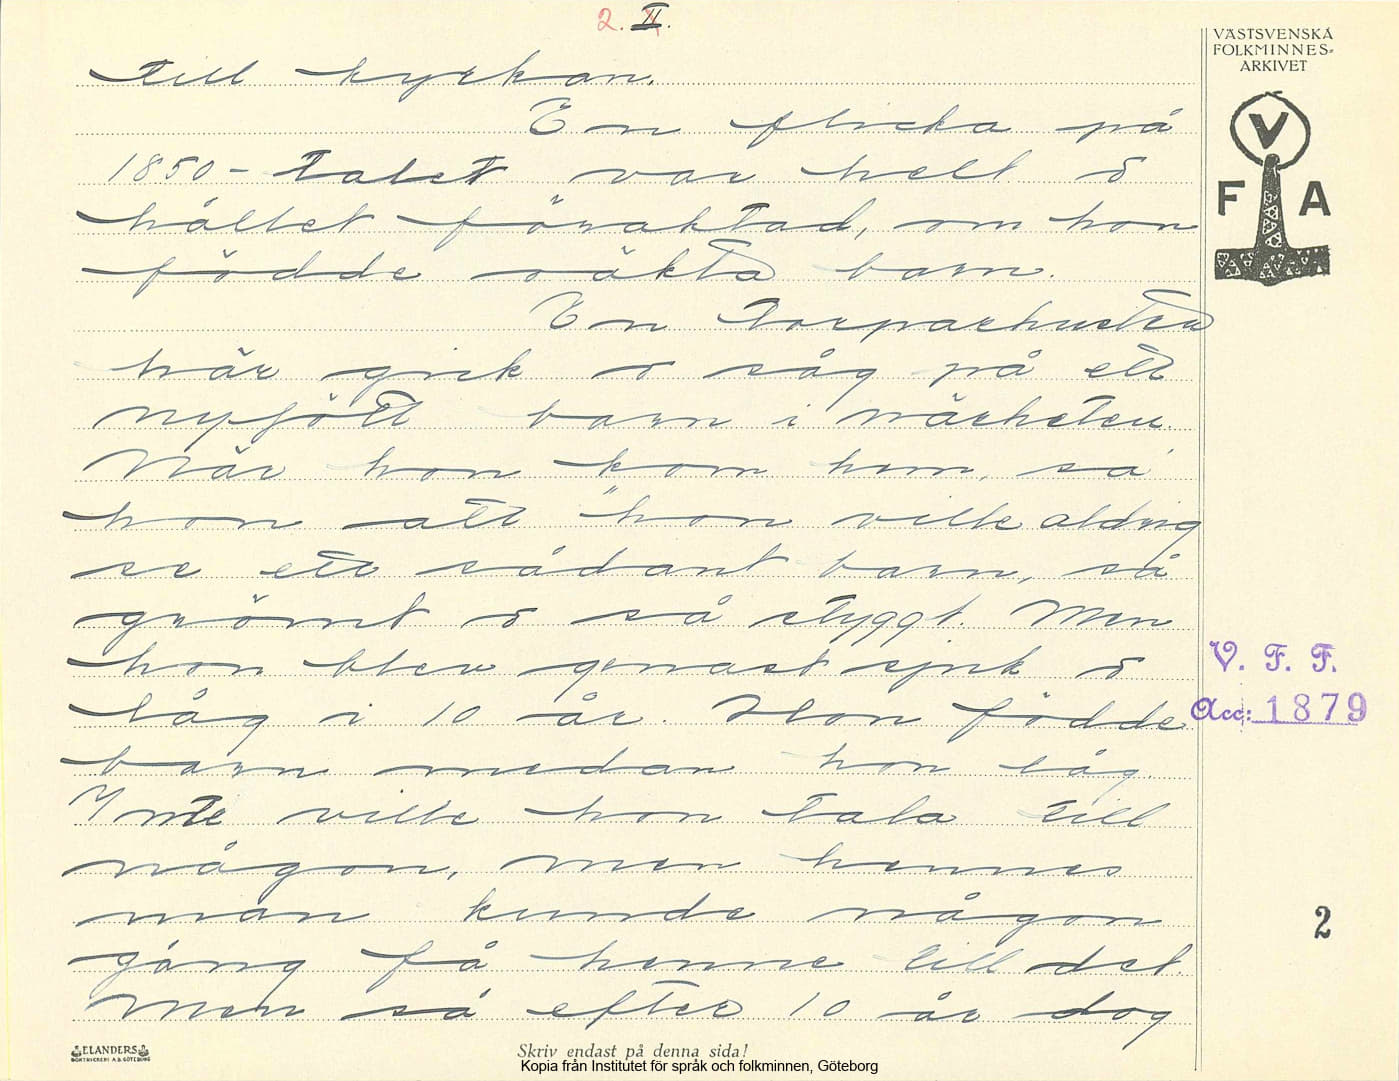 2. II.
VÄSTSVENSKA
FOLKMINNES-
ARKIVET
V
F A
till kyrkan.
En flicka på
1850-talet var helt o
hållet föraktad, om hon
födde oäkta barn.
En torparhustru
här gick o såg på ett
nyfött barn i närheten.
När hon kom hem, sa
hon att "hon ville aldrig
se ett sådant barn, så
grömt o så styggt. Men
hon blev genast sjuk o
låg i 10 år. Hon födde
barn medan hon låg.
Inte ville hon tala till
någon, men hennes
man kunde någon
gång få henne till det.
Men så efter 10 år dog
V. F. F.
Acc: 1879
2
ELANDERS
BOKTRYCKERI A.B. GÖTEBORG
Skriv endast på denna sida!
Kopia från Institutet för språk och folkminnen, Göteborg